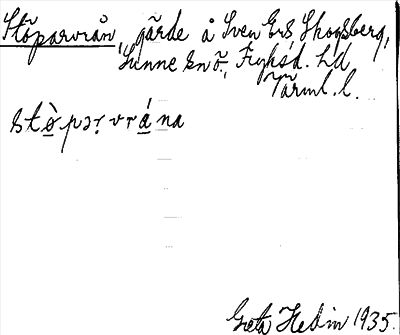 Stöparvrån, gärde å Sven Ers, Skogsberg,
Sunne sn Ö., Fryksd. hd
Värml. l.
stö̀pər vrána
Greta Hedin 1935.